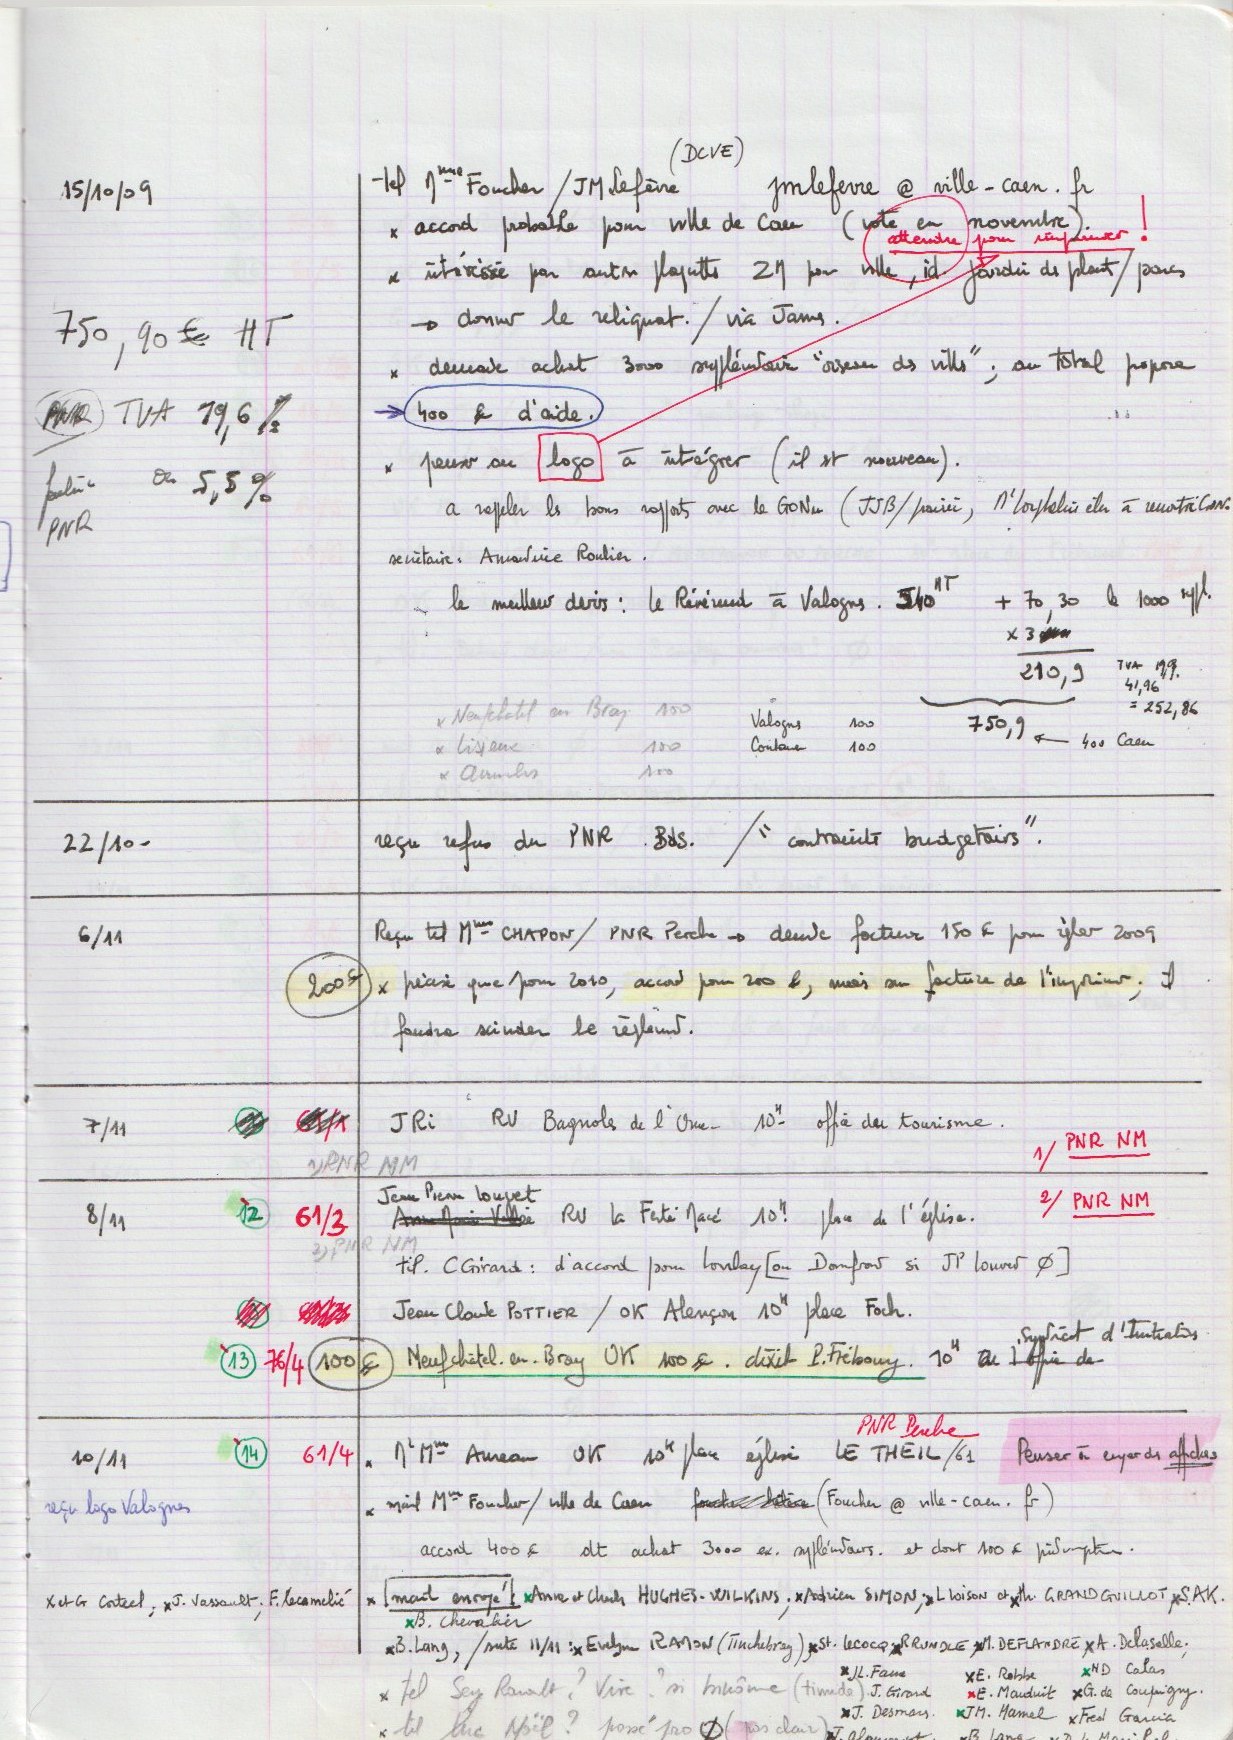 (DCVE)
15/10/09
-tel Mme Foucher / JM Lefèvre jmlefevre @ ville-caen.fr
x accord probable pour ville de Caen (vote en novembre).
attendre pour imprimer !
x intéressé par autre plaquette 2M pour ville, id jardin des plantes/parcs
→ donner le reliquat. / via James.
750,90 € HT
x demande achat 3000 supplémentaire "oiseaux des villes"; au total propose
→ 400 € d'aide.
PNR TVA 19,6 %
x penser au logo à intégrer (il est nouveau).
ou 5,5 %
PNR
a rappeler les bons rapports avec le GONm (JJB/
secrétaire: Amandine Roulier.
le meilleur devis: le Révérend à Valognes. 540 HT + 70,30 le 1000 suppl.
x 3
210,9
TVA 199.
41,96
= 252,86
750,9 ← 400 Caen
x Neufchatel en Bray 100
Valognes 100
x Lisieux 100
Coutance 100
x Avranches 100
22/10-
reçu refus du PNR BdS. / "contrainte budgétaires".
6/11
Reçu tel Mme CHAPON / PNR Perche → demande facture 150 € pour régler 2009
200€
x précisé que pour 2010, accord pour 200 €, mais sur facture de l'imprimeur; il
faudra scinder le règlement.
7/11
61/1
JRi RV Bagnoles de l'Orne - 10H office du tourisme.
1/ PNR NM
1) PNR NM
8/11
12
61/3
Jean Pierre Louvet
RV La Ferté Macé 10H place de l'église.
2/ PNR NM
2) PNR NM
tél. C Girard: d'accord pour Lonlay [ou Domfront si JP Louvet Ø]
Jean Claude POTTIER / OK Alençon 10H place Foch.
13
76/4
100 €
Neufchâtel-en-Bray OK 100 €. dixit P. Frébourg. 10H
Syndicat d'Initiatives
10/11
14
61/4
PNR Perche
. M. Mme Auneau OK 10H place église LE THEIL/61
Penser à envoyer des affiches
reçu logo Valognes
x mail Mme Foucher / ville de Caen (Foucher @ ville-caen.fr)
accord 400 € dt achat 3000 ex. supplémentaires. et dont 100 €
x et Gr Corteel; x J. Vassault; F. Lecornelié
x [mail envoyé]: x Anne et Charles HUGHES-WILKINS, x Adrien SIMON, x L Loison et x Th. GRANDGUILLOT, x S.A.K.
x B. Chevalier
x B. Lang, / suite 11/11: x Evelyne RAMON (Tinchebray), x St. LECOCQ x R RUNDLE x M. DEFLANDRE x A. Delaselle,
x JL. Faure x E. Robbe x ND Calas
x tel Serge Renault? Vire? si binôme (timide) J. Girard x E. Mauduit x G. de Coupigny.
x J. Desmares. x JM. Hamel x Fred Garcia
x tel Luc Noël? passé pro Ø (pas clair)
B. Lang